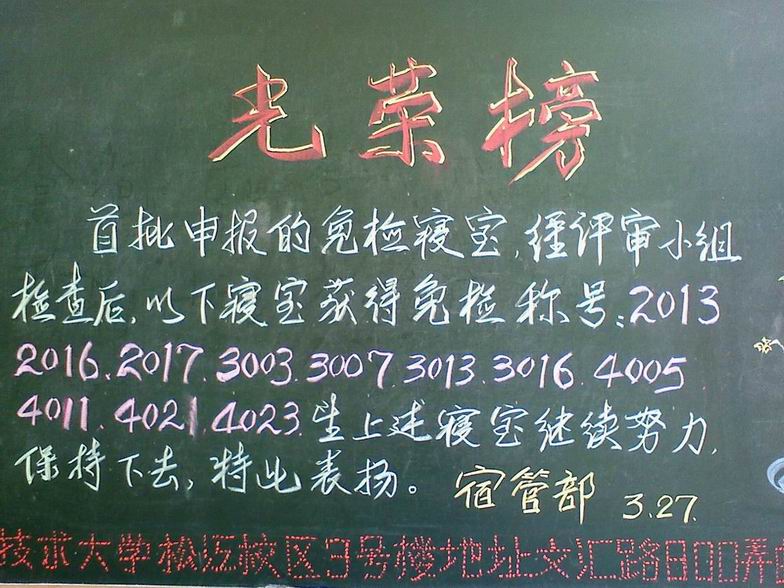 光荣榜
首批申报的免检寝室,经评审小组
检查后,以下寝室获得免检称号:2013
2016.2017.3003.3007.3013.3016.4005
4011.4021.4023.望上述寝室继续努力,
保持下去,特此表扬。宿管部 3.27.
技术大学松江校区3号楼地址文汇路800弄